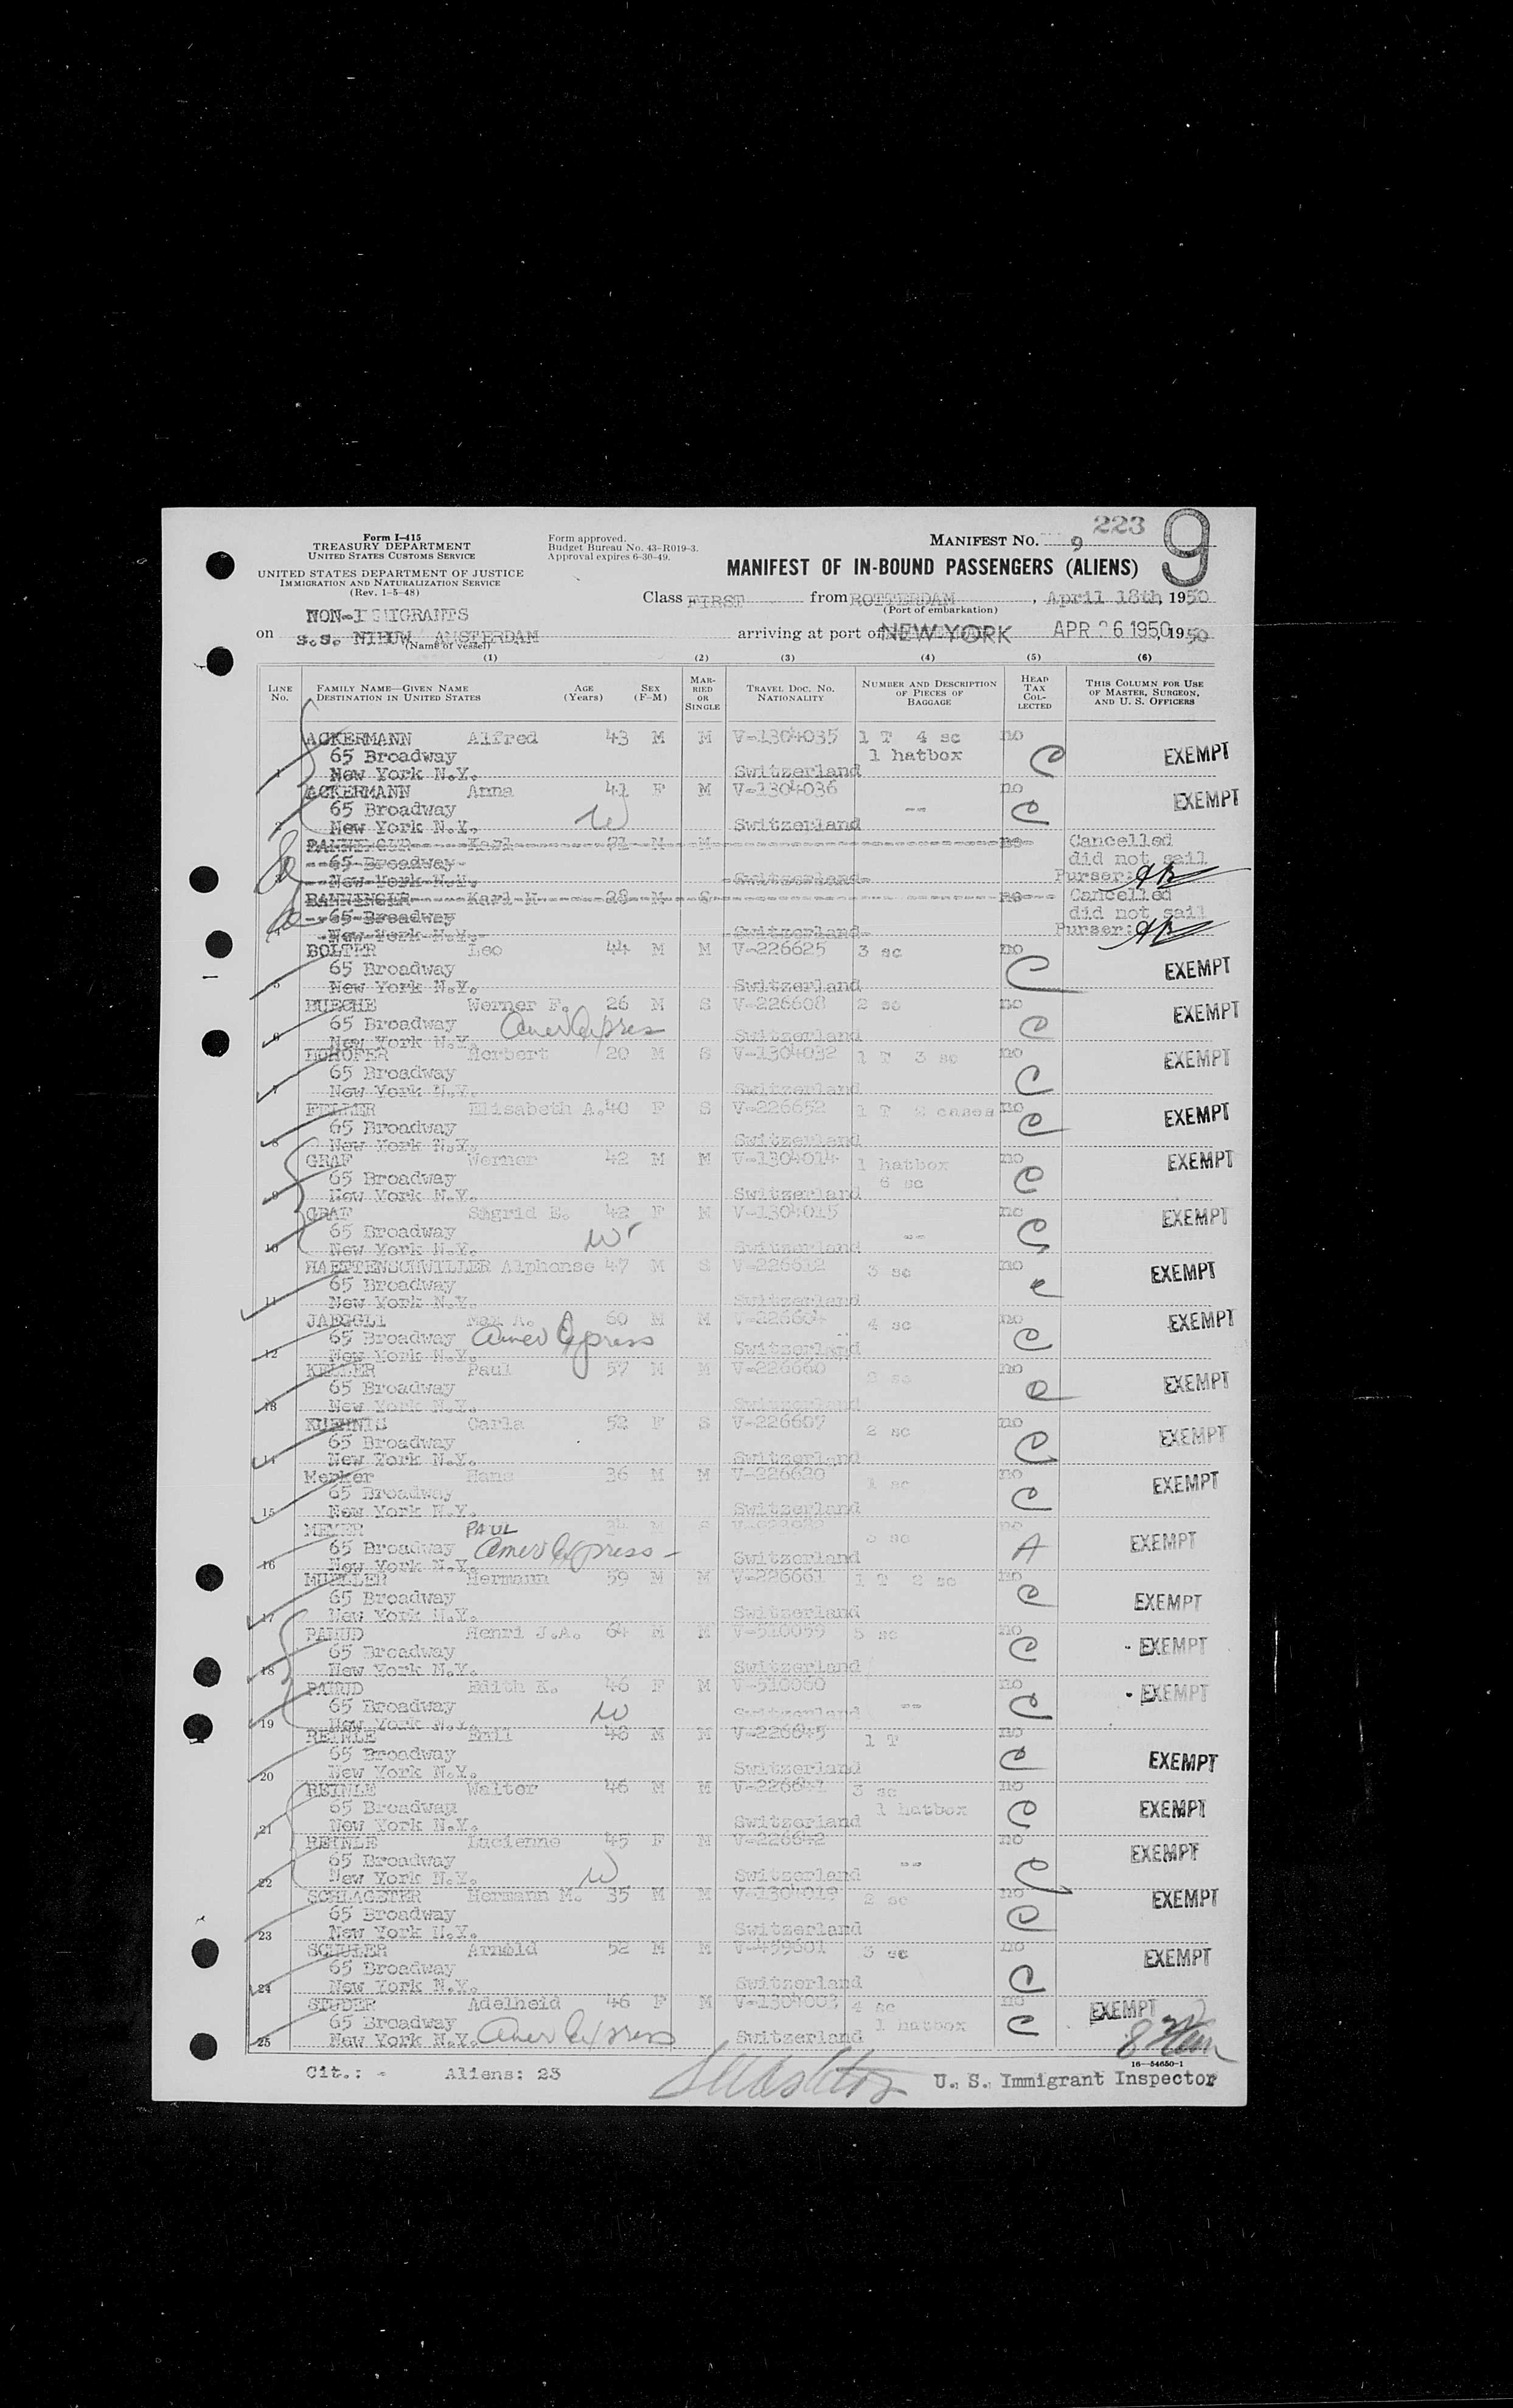 223
9
Form I-415
TREASURY DEPARTMENT
UNITED STATES CUSTOMS SERVICE
Form approved.
Budget Bureau No. 43-R019-3.
Approval expires 6-30-49.
MANIFEST No. 9
UNITED STATES DEPARTMENT OF JUSTICE
IMMIGRATION AND NATURALIZATION SERVICE
(Rev. 1-5-48)
MANIFEST OF IN-BOUND PASSENGERS (ALIENS)
Class FIRST from ROTTERDAM, April 18th, 1950
(Port of embarkation)
NON-IMMIGRANTS
on s.s. NIEUW AMSTERDAM arriving at port of NEW YORK APR 26 1950, 1950
(Name of vessel)
(1) (2) (3) (4) (5) (6)
LINE No. FAMILY NAME—GIVEN NAME DESTINATION IN UNITED STATES AGE (Years) SEX (F-M) MARRIED OR SINGLE TRAVEL DOC. No. NATIONALITY NUMBER AND DESCRIPTION OF PIECES OF BAGGAGE HEAD TAX COLLECTED THIS COLUMN FOR USE OF MASTER, SURGEON, AND U. S. OFFICERS
ACKERMANN Alfred 43 M M V-1304035 1 T 4 sc no
65 Broadway 1 hatbox C EXEMPT
1 New York N.Y. Switzerland
ACKERMANN Anna 41 F M V-1304036 no
65 Broadway W -- C EXEMPT
2 New York N.Y. Switzerland
Karl M no Cancelled
65 Broadway did not sail
New York N.Y. Switzerland Purser:
Karl H 28 M S no Cancelled
65 Broadway did not sail
4 New York N.Y. Switzerland Purser:
BOLTER Leo 44 M M V-226625 3 sc no
65 Broadway C EXEMPT
5 New York N.Y. Switzerland
BUECHE Werner F. 26 M S V-226608 2 sc no
65 Broadway Amer Express C EXEMPT
6 New York N.Y. Switzerland
DOROFER Herbert 20 M S V-1304032 1 T 3 sc no
65 Broadway C EXEMPT
7 New York N.Y. Switzerland
Elisabeth A. 40 F S V-226652 1 T 2 cases no
65 Broadway C EXEMPT
8 New York N.Y. Switzerland
GRAF Werner 42 M M V-1304014 1 hatbox no
65 Broadway 6 sc C EXEMPT
9 New York N.Y. Switzerland
GRAF Sigrid E. 42 F M V-1304015 no
65 Broadway W -- C EXEMPT
10 New York N.Y. Switzerland
HAETTENSCHWILLER Alphonse 47 M S V-226612 3 sc no
65 Broadway C EXEMPT
11 New York N.Y. Switzerland
JAEGGLI Max A. 60 M M V-226604 4 sc no
65 Broadway Amer Express C EXEMPT
12 New York N.Y. Switzerland
KELLER Paul 57 M M V-226660 2 sc no
65 Broadway C EXEMPT
13 New York N.Y. Switzerland
KUEHNIS Carla 52 F S V-226607 2 sc no
65 Broadway C EXEMPT
14 New York N.Y. Switzerland
Merker Hans 36 M M V-226620 1 sc no
65 Broadway C EXEMPT
15 New York N.Y. Switzerland
MEYER PAUL M S 3 sc no
65 Broadway Amer Express - A EXEMPT
16 New York N.Y. Switzerland
MUELLER Hermann 59 M M V-226661 1 T 2 sc no
65 Broadway C EXEMPT
17 New York N.Y. Switzerland
PAHUD Henri J.A. 64 M M V-510059 5 sc no
65 Broadway C EXEMPT
18 New York N.Y. Switzerland
PAHUD Edith K. 46 F M V-510060 no
65 Broadway W -- C EXEMPT
19 New York N.Y. Switzerland
REINLE Emil 48 M M V-226645 1 T no
65 Broadway C EXEMPT
20 New York N.Y. Switzerland
REINLE Walter 46 M M V-226641 3 sc no
65 Broadway 1 hatbox C EXEMPT
21 New York N.Y. Switzerland
REINLE Lucienne 45 F M V-226642 no
65 Broadway W -- C EXEMPT
22 New York N.Y. Switzerland
SCHLAGETER Hermann M. 35 M M V-1304019 2 sc no
65 Broadway C EXEMPT
23 New York N.Y. Switzerland
SCHULER Arnold 52 M M V-459601 3 sc no
65 Broadway C EXEMPT
24 New York N.Y. Switzerland
STUDER Adelheid 46 F M V-1304003 4 sc no
65 Broadway 1 hatbox C EXEMPT
25 New York N.Y. Amer Express Switzerland
16—54650-1
Cit.: - Aliens: 23 U. S. Immigrant Inspector